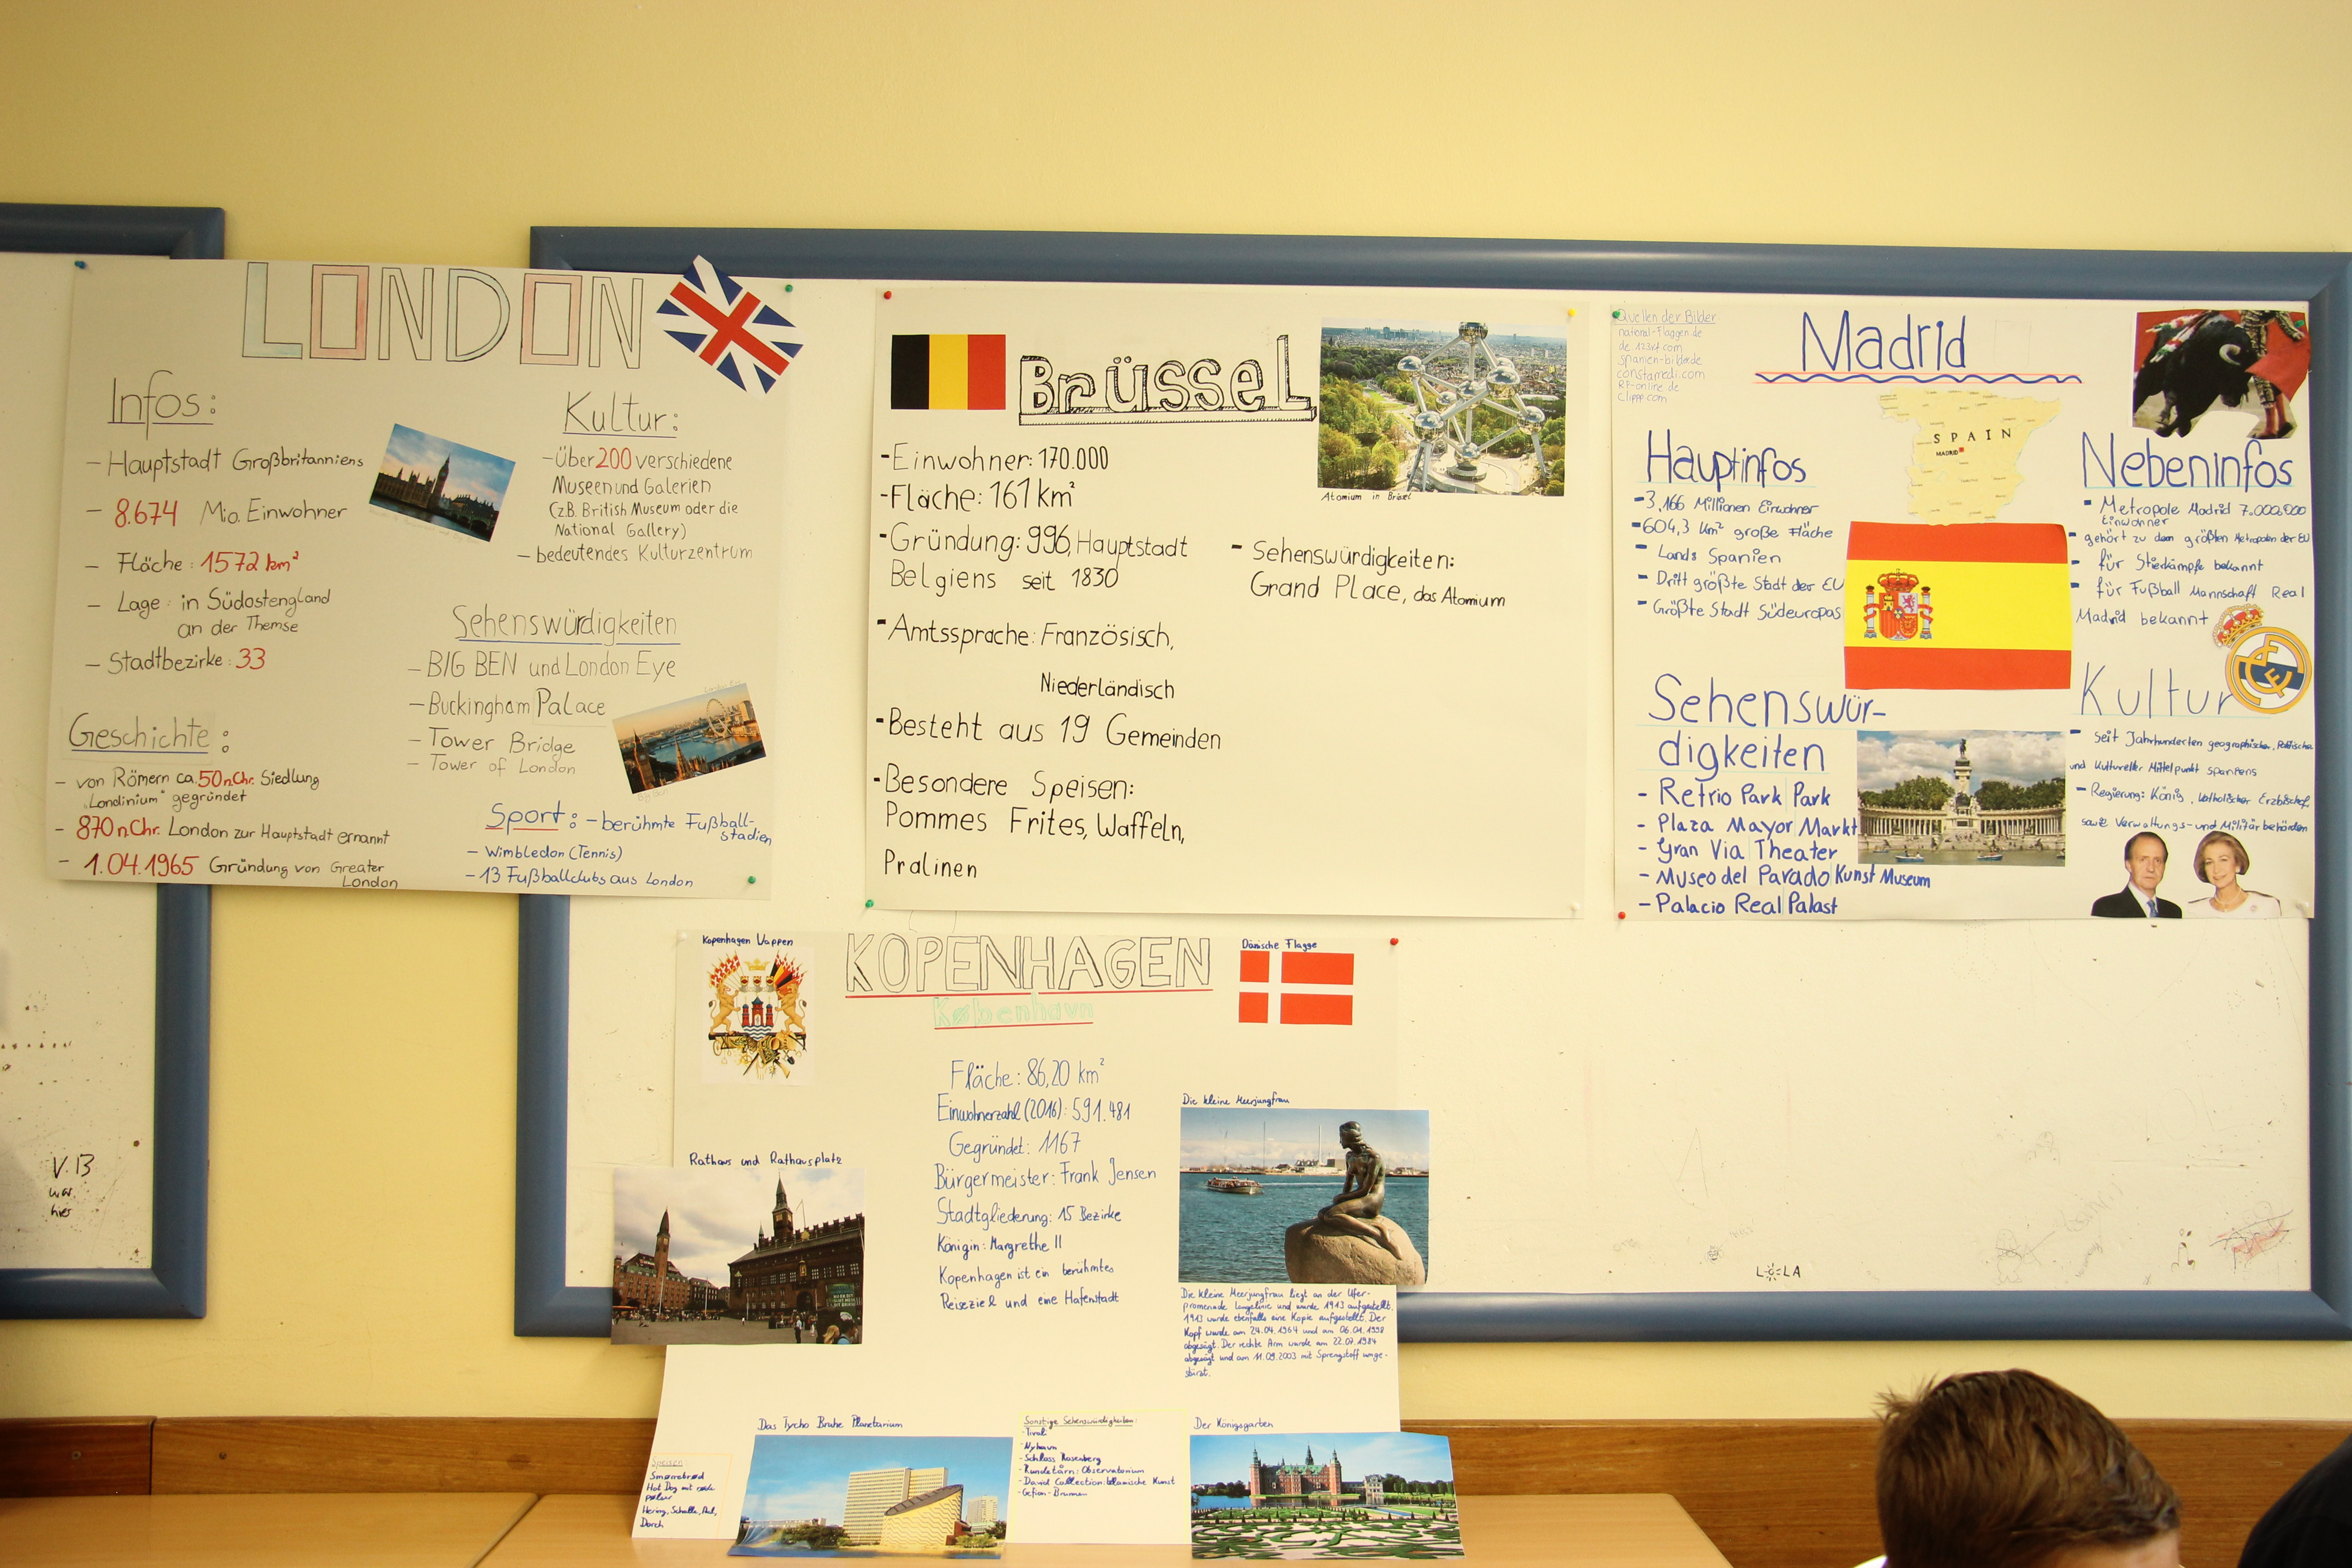 LONDON
Infos:
- Hauptstadt Großbritanniens
- 8.674 Mio. Einwohner
- Fläche: 1572 km²
- Lage: in Südostengland
an der Themse
- Stadtbezirke: 33
Geschichte:
- von Römern ca. 50 n.Chr. Siedlung
"Londinium" gegründet
- 870 n.Chr. London zur Hauptstadt ernannt
- 1.04.1965 Gründung von Greater
London
Kultur:
- Über 200 verschiedene
Museen und Galerien
(z.B. British Museum oder die
National Gallery)
- bedeutendes Kulturzentrum
Sehenswürdigkeiten
- BIG BEN und London Eye
- Buckingham Palace
- Tower Bridge
- Tower of London
Sport: - berühmte Fußball-
stadien
- Wimbledon (Tennis)
- 13 Fußballclubs aus London
Brüssel
- Einwohner: 170.000
- Fläche: 161 km²
- Gründung: 996, Hauptstadt
Belgiens seit 1830
- Amtssprache: Französisch,
Niederländisch
- Besteht aus 19 Gemeinden
- Besondere Speisen:
Pommes Frites, Waffeln,
Pralinen
Atomium in Brüssel
- Sehenswürdigkeiten:
Grand Place, das Atomium
Quellen der Bilder
national-flaggen.de
de.123rf.com
spanien-bilder.de
constamedi.com
RP-online.de
clipp.com
Madrid
SPAIN
MADRID
Hauptinfos
- 3,166 Millionen Einwohner
- 604,3 km² große Fläche
- Land: Spanien
- Dritt größte Stadt der EU
- Größte Stadt Südeuropas
Sehenswür-
digkeiten
- Retrio Park Park
- Plaza Mayor Markt
- Gran Via Theater
- Museo del Parado Kunst Museum
- Palacio Real Palast
Nebeninfos
- Metropole Madrid 7.000.000
Einwohner
- gehört zu den größten Metropolen der EU
- für Stierkämpfe bekannt
- für Fußball Mannschaft Real
Madrid bekannt
Kultur
- seit Jahrhunderten geographischer, Politischer
und Kultureller Mittelpunkt Spaniens
- Regierung: König, katholischer Erzbischof
sowie Verwaltungs- und Militärbehörden
Kopenhagen Wappen
KOPENHAGEN
København
Dänische Flagge
Fläche: 86,20 km²
Einwohnerzahl (2016): 591.481
Gegründet: 1167
Bürgermeister: Frank Jensen
Stadtgliederung: 15 Bezirke
Königin: Margrethe II
Kopenhagen ist ein berühmtes
Reiseziel und eine Hafenstadt
Rathaus und Rathausplatz
Die kleine Meerjungfrau
Die kleine Meerjungfrau liegt an der Ufer-
promenade Langelinie und wurde 1913 aufgestellt.
1913 wurde ebenfalls eine Kopie aufgestellt. Der
Kopf wurde am 24.04.1964 und am 06.01.1998
abgesägt. Der rechte Arm wurde am 22.07.1984
abgesägt und am 11.09.2003 mit Sprengstoff umge-
stürzt.
Speisen:
Smørrebrød
Hot Dog mit røde
pølser
Hering, Scholle, Aal,
Dorsch
Das Tycho Brahe Planetarium
Sonstige Sehenswürdigkeiten:
- Tivoli
- Nyhavn
- Schloss Rosenberg
- Rundetårn: Observatorium
- David Collection: Islamische Kunst
- Gefion-Brunnen
Der Königsgarten
V.13
war
hier
LOLA